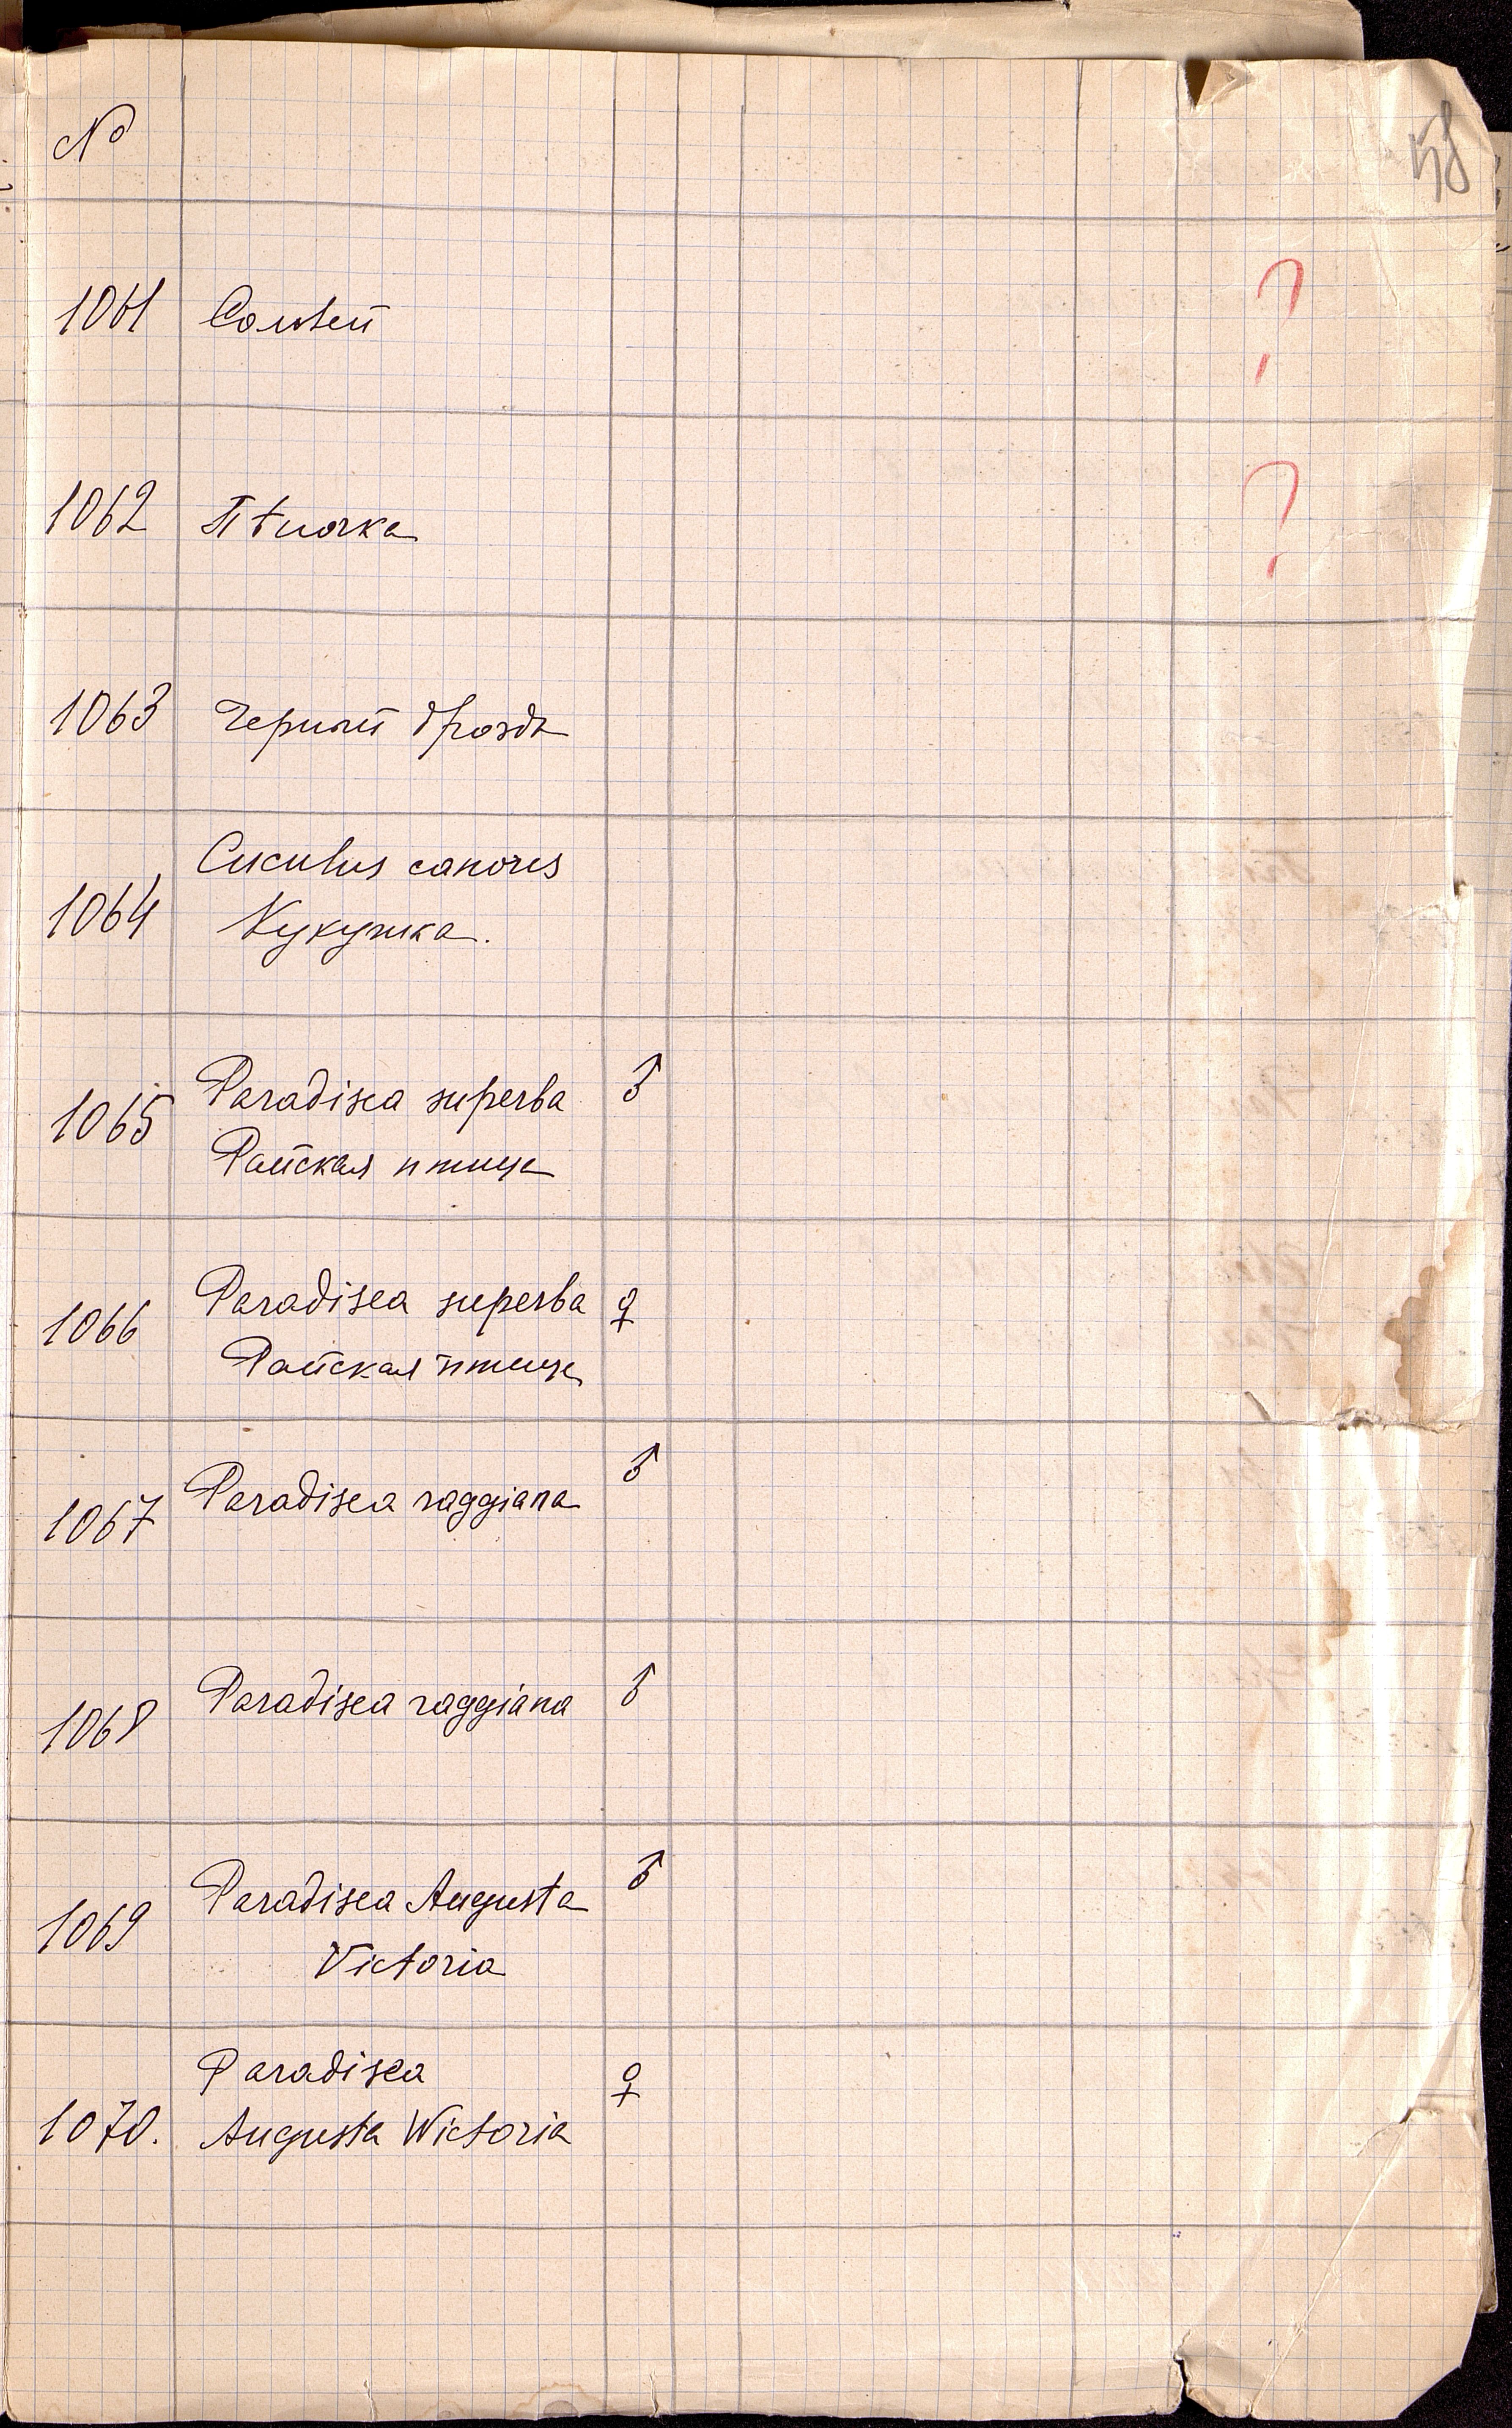 58
№
1061 Соловей ?
1062 Пѣночка ?
1063 Черный дроздъ
Cuculus canorus
1064 Кукушка.
Paradisea superba ♂
1065 Райская птица
Paradisea superba ♀
1066 Райская птица
1067 Paradisea raggiana ♂
1068 Paradisea raggiana ♂
Paradisea Augusta ♂
1069 Victoria
Paradisea ♀
1070. Augusta Wictoria